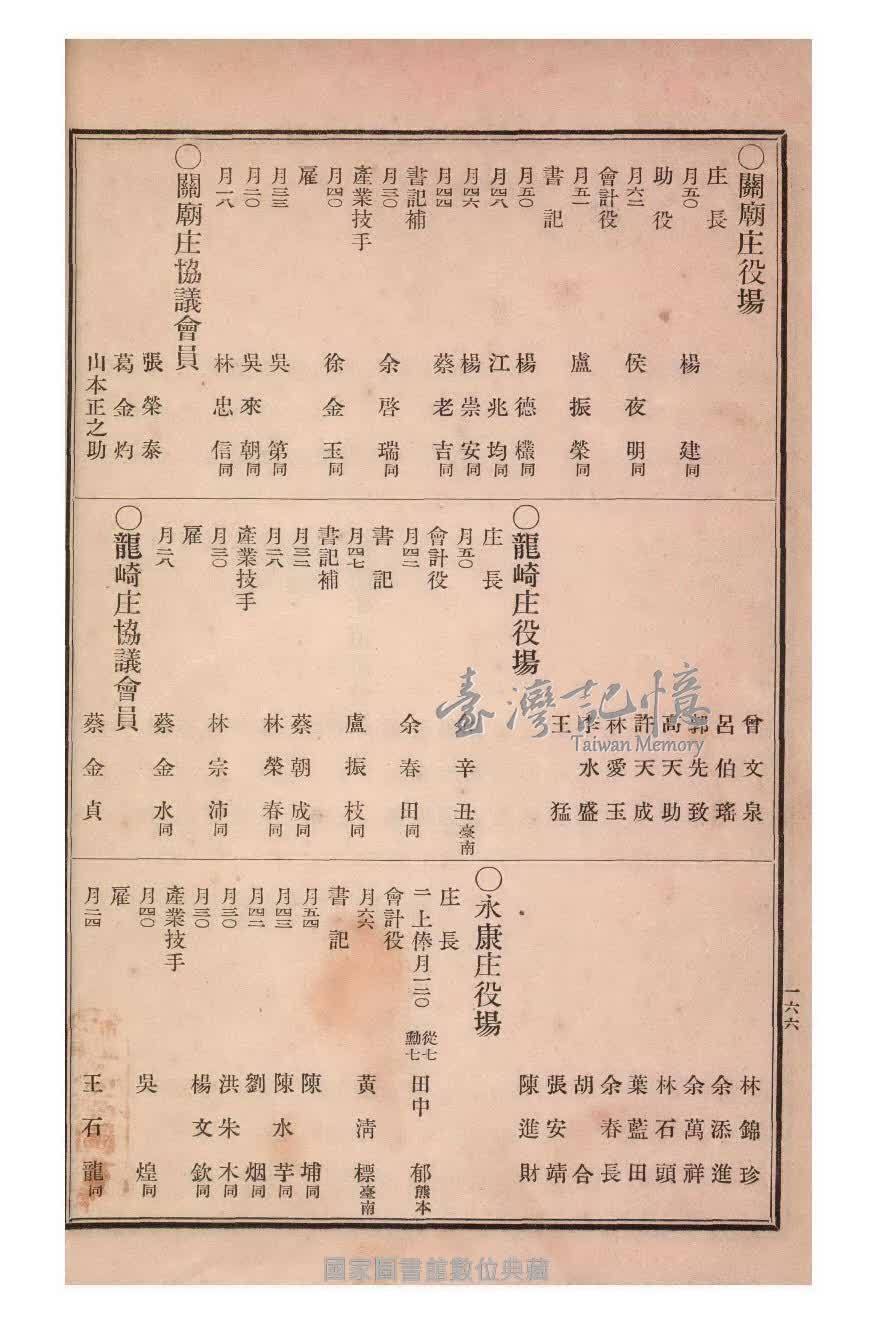 〇關廟庄役場
庄長
月五〇 楊建同
助役
月六二 侯夜明同
會計役
月五一 盧振榮同
書記
月五〇 楊德欉同
月四八 江兆均同
月四六 楊崇安同
月四四 蔡老吉同
書記補
月三〇 余啓瑞同
產業技手
月四〇 徐金玉同
雇
月三三 吳第同
月二〇 吳來朝同
月一八 林忠信同
〇關廟庄協議會員
張榮泰
葛金灼
山本正之助
曾文泉
呂伯瑤
郭先致
高天助
許天成
林愛玉
李水盛
王猛
〇龍崎庄役場
庄長
月五〇 辛丑臺南
會計役
月四二 余春田同
書記
月四七 盧振枝同
書記補
月三二 蔡朝成同
月二八 林榮春同
產業技手
月三〇 林宗沛同
雇
月二八 蔡金水同
〇龍崎庄協議會員
蔡金貞
林錦珍
余添進
余萬祥
林石頭
葉藍田
余春長
胡合
張安靖
陳進財
〇永康庄役場
庄長
一上俸月一二〇 從七勳七 田中郁熊本
會計役
月六六 黃淸標臺南
書記
月五四 陳埔同
月四三 陳水芋同
月四二 劉烟同
月三〇 洪朱木同
月三〇 楊文欽同
產業技手
月四〇 吳煌同
雇
月二四 王石龍同
一六六
臺灣記憶
Taiwan Memory
國家圖書館數位典藏